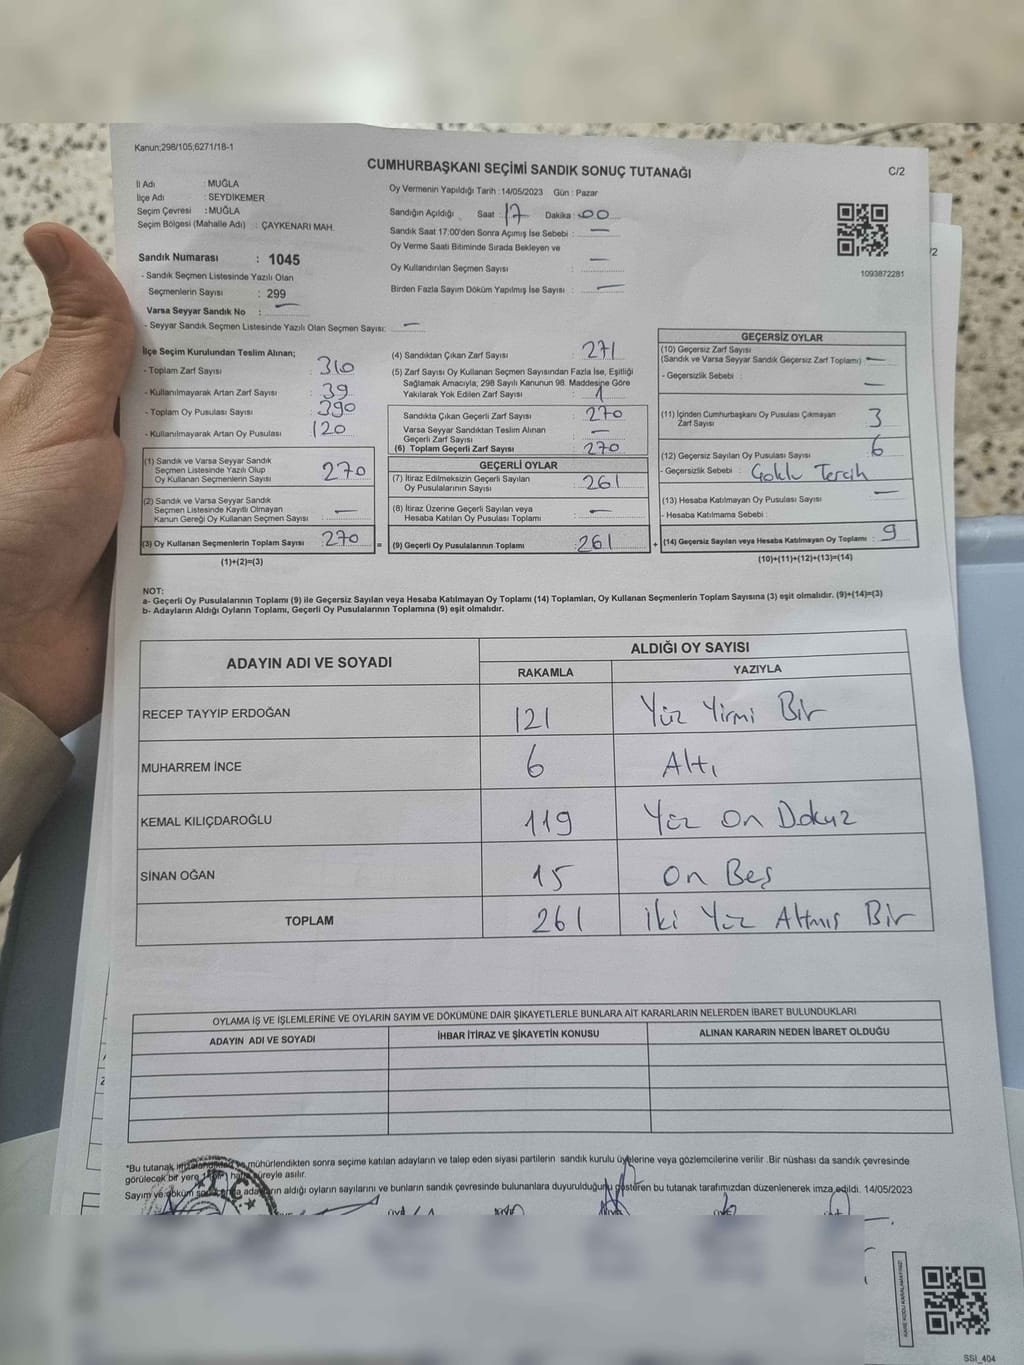 Kanun;298/105;6271/18-1
CUMHURBAŞKANI SEÇİMİ SANDIK SONUÇ TUTANAĞI
C/2
İl Adı : MUĞLA
İlçe Adı : SEYDİKEMER
Seçim Çevresi : MUĞLA
Seçim Bölgesi (Mahalle Adı) : ÇAYKENARI MAH.
Sandık Numarası : 1045
- Sandık Seçmen Listesinde Yazılı Olan
Seçmenlerin Sayısı : 299
Varsa Seyyar Sandık No : —
- Seyyar Sandık Seçmen Listesinde Yazılı Olan Seçmen Sayısı: —
Oy Vermenin Yapıldığı Tarih : 14/05/2023 Gün : Pazar
Sandığın Açıldığı Saat : 17 Dakika : 00
Sandık Saat 17:00'den Sonra Açımış İse Sebebi : —
Oy Verme Saati Bitiminde Sırada Bekleyen ve
Oy Kullandırılan Seçmen Sayısı : —
Birden Fazla Sayım Döküm Yapılmış İse Sayısı : —
1093872281
İlçe Seçim Kurulundan Teslim Alınan;
- Toplam Zarf Sayısı : 310
- Kullanılmayarak Artan Zarf Sayısı : 39
- Toplam Oy Pusulası Sayısı : 390
- Kullanılmayarak Artan Oy Pusulası : 120
(1) Sandık ve Varsa Seyyar Sandık
Seçmen Listesinde Yazılı Olup
Oy Kullanan Seçmenlerin Sayısı : 270
(2) Sandık ve Varsa Seyyar Sandık
Seçmen Listesinde Kayıtlı Olmayan
Kanun Gereği Oy Kullanan Seçmen Sayısı : —
(3) Oy Kullanan Seçmenlerin Toplam Sayısı : 270
(1)+(2)=(3)
(4) Sandıktan Çıkan Zarf Sayısı : 271
(5) Zarf Sayısı Oy Kullanan Seçmen Sayısından Fazla İse, Eşitliği
Sağlamak Amacıyla; 298 Sayılı Kanunun 98. Maddesine Göre
Yakılarak Yok Edilen Zarf Sayısı : 1
Sandıkta Çıkan Geçerli Zarf Sayısı : 270
Varsa Seyyar Sandıktan Teslim Alınan
Geçerli Zarf Sayısı : —
(6) Toplam Geçerli Zarf Sayısı : 270
GEÇERLİ OYLAR
(7) İtiraz Edilmeksizin Geçerli Sayılan
Oy Pusulalarının Sayısı : 261
(8) İtiraz Üzerine Geçerli Sayılan veya
Hesaba Katılan Oy Pusulası Toplamı : —
= (9) Geçerli Oy Pusulalarının Toplamı : 261 +
GEÇERSİZ OYLAR
(10) Geçersiz Zarf Sayısı
(Sandık ve Varsa Seyyar Sandık Geçersiz Zarf Toplamı) : —
- Geçersizlik Sebebi : —
(11) İçinden Cumhurbaşkanı Oy Pusulası Çıkmayan
Zarf Sayısı : 3
(12) Geçersiz Sayılan Oy Pusulası Sayısı : 6
- Geçersizlik Sebebi : Çoklu Tercih
(13) Hesaba Katılmayan Oy Pusulası Sayısı : —
- Hesaba Katılmama Sebebi :
(14) Geçersiz Sayılan veya Hesaba Katılmayan Oy Toplamı : 9
(10)+(11)+(12)+(13)=(14)
NOT:
a- Geçerli Oy Pusulalarının Toplamı (9) ile Geçersiz Sayılan veya Hesaba Katılmayan Oy Toplamı (14) Toplamları, Oy Kullanan Seçmenlerin Toplam Sayısına (3) eşit olmalıdır. (9)+(14)=(3)
b- Adayların Aldığı Oyların Toplamı, Geçerli Oy Pusulalarının Toplamına (9) eşit olmalıdır.
ADAYIN ADI VE SOYADI
ALDIĞI OY SAYISI
RAKAMLA YAZIYLA
RECEP TAYYİP ERDOĞAN 121 Yüz Yirmi Bir
MUHARREM İNCE 6 Altı
KEMAL KILIÇDAROĞLU 119 Yüz On Dokuz
SİNAN OĞAN 15 On Beş
TOPLAM 261 İki Yüz Altmış Bir
OYLAMA İŞ VE İŞLEMLERİNE VE OYLARIN SAYIM VE DÖKÜMÜNE DAİR ŞİKAYETLERLE BUNLARA AİT KARARLARIN NELERDEN İBARET BULUNDUKLARI
ADAYIN ADI VE SOYADI İHBAR İTİRAZ VE ŞİKAYETİN KONUSU ALINAN KARARIN NEDEN İBARET OLDUĞU
*Bu tutanak mühürlendikten sonra seçime katılan adayların ve talep eden siyasi partilerin sandık kurulu üyelerine veya gözlemcilerine verilir .Bir nüshası da sandık çevresinde
görülecek bir yere hafta süreyle asılır.
Sayım ve döküm adayların aldığı oyların sayılarını ve bunların sandık çevresinde bulunanlara duyurulduğunu gösteren bu tutanak tarafımızdan düzenlenerek imza edildi. 14/05/2023
SSI_404